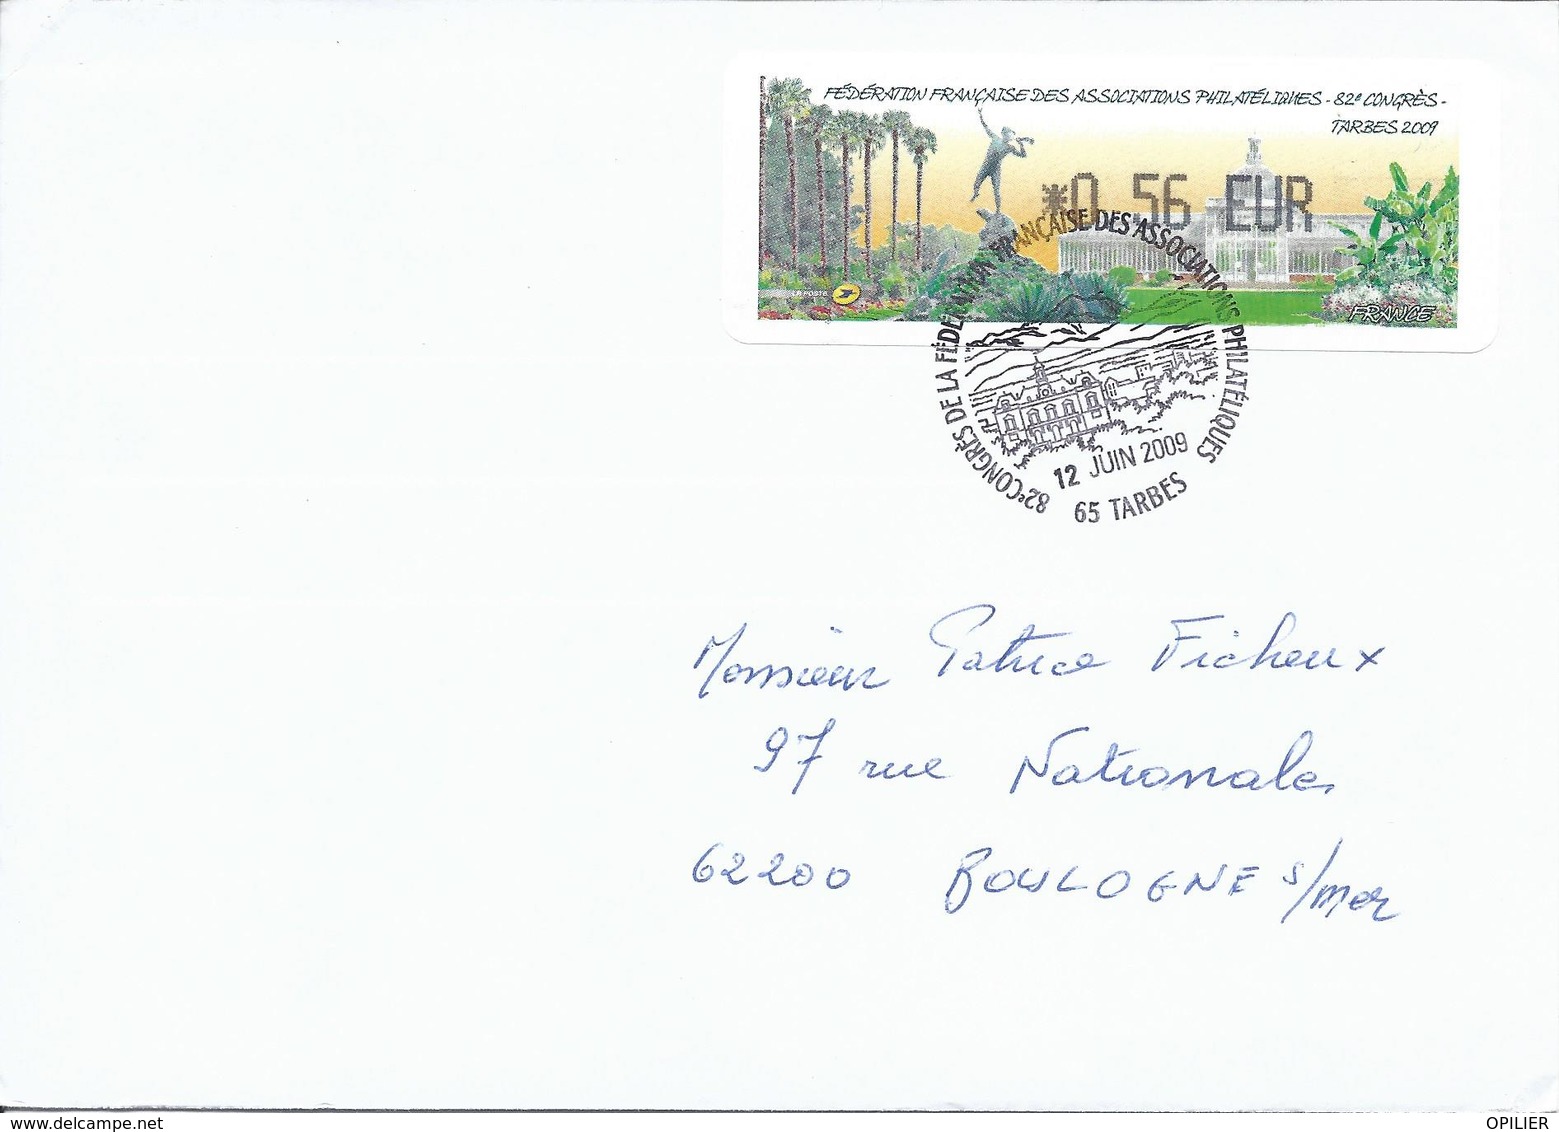 FÉDÉRATION FRANÇAISE DES ASSOCIATIONS PHILATÉLIQUES - 82e CONGRÈS -
TARBES 2009
*0,56 EUR
LA POSTE
FRANCE
82e CONGRÈS DE LA FÉDÉRATION FRANÇAISE DES ASSOCIATIONS PHILATÉLIQUES
12 JUIN 2009
65 TARBES
Monsieur Patrice Ficheux
97 rue Nationale
62200 BOULOGNE s/mer
www.delcampe.net
OPILIER